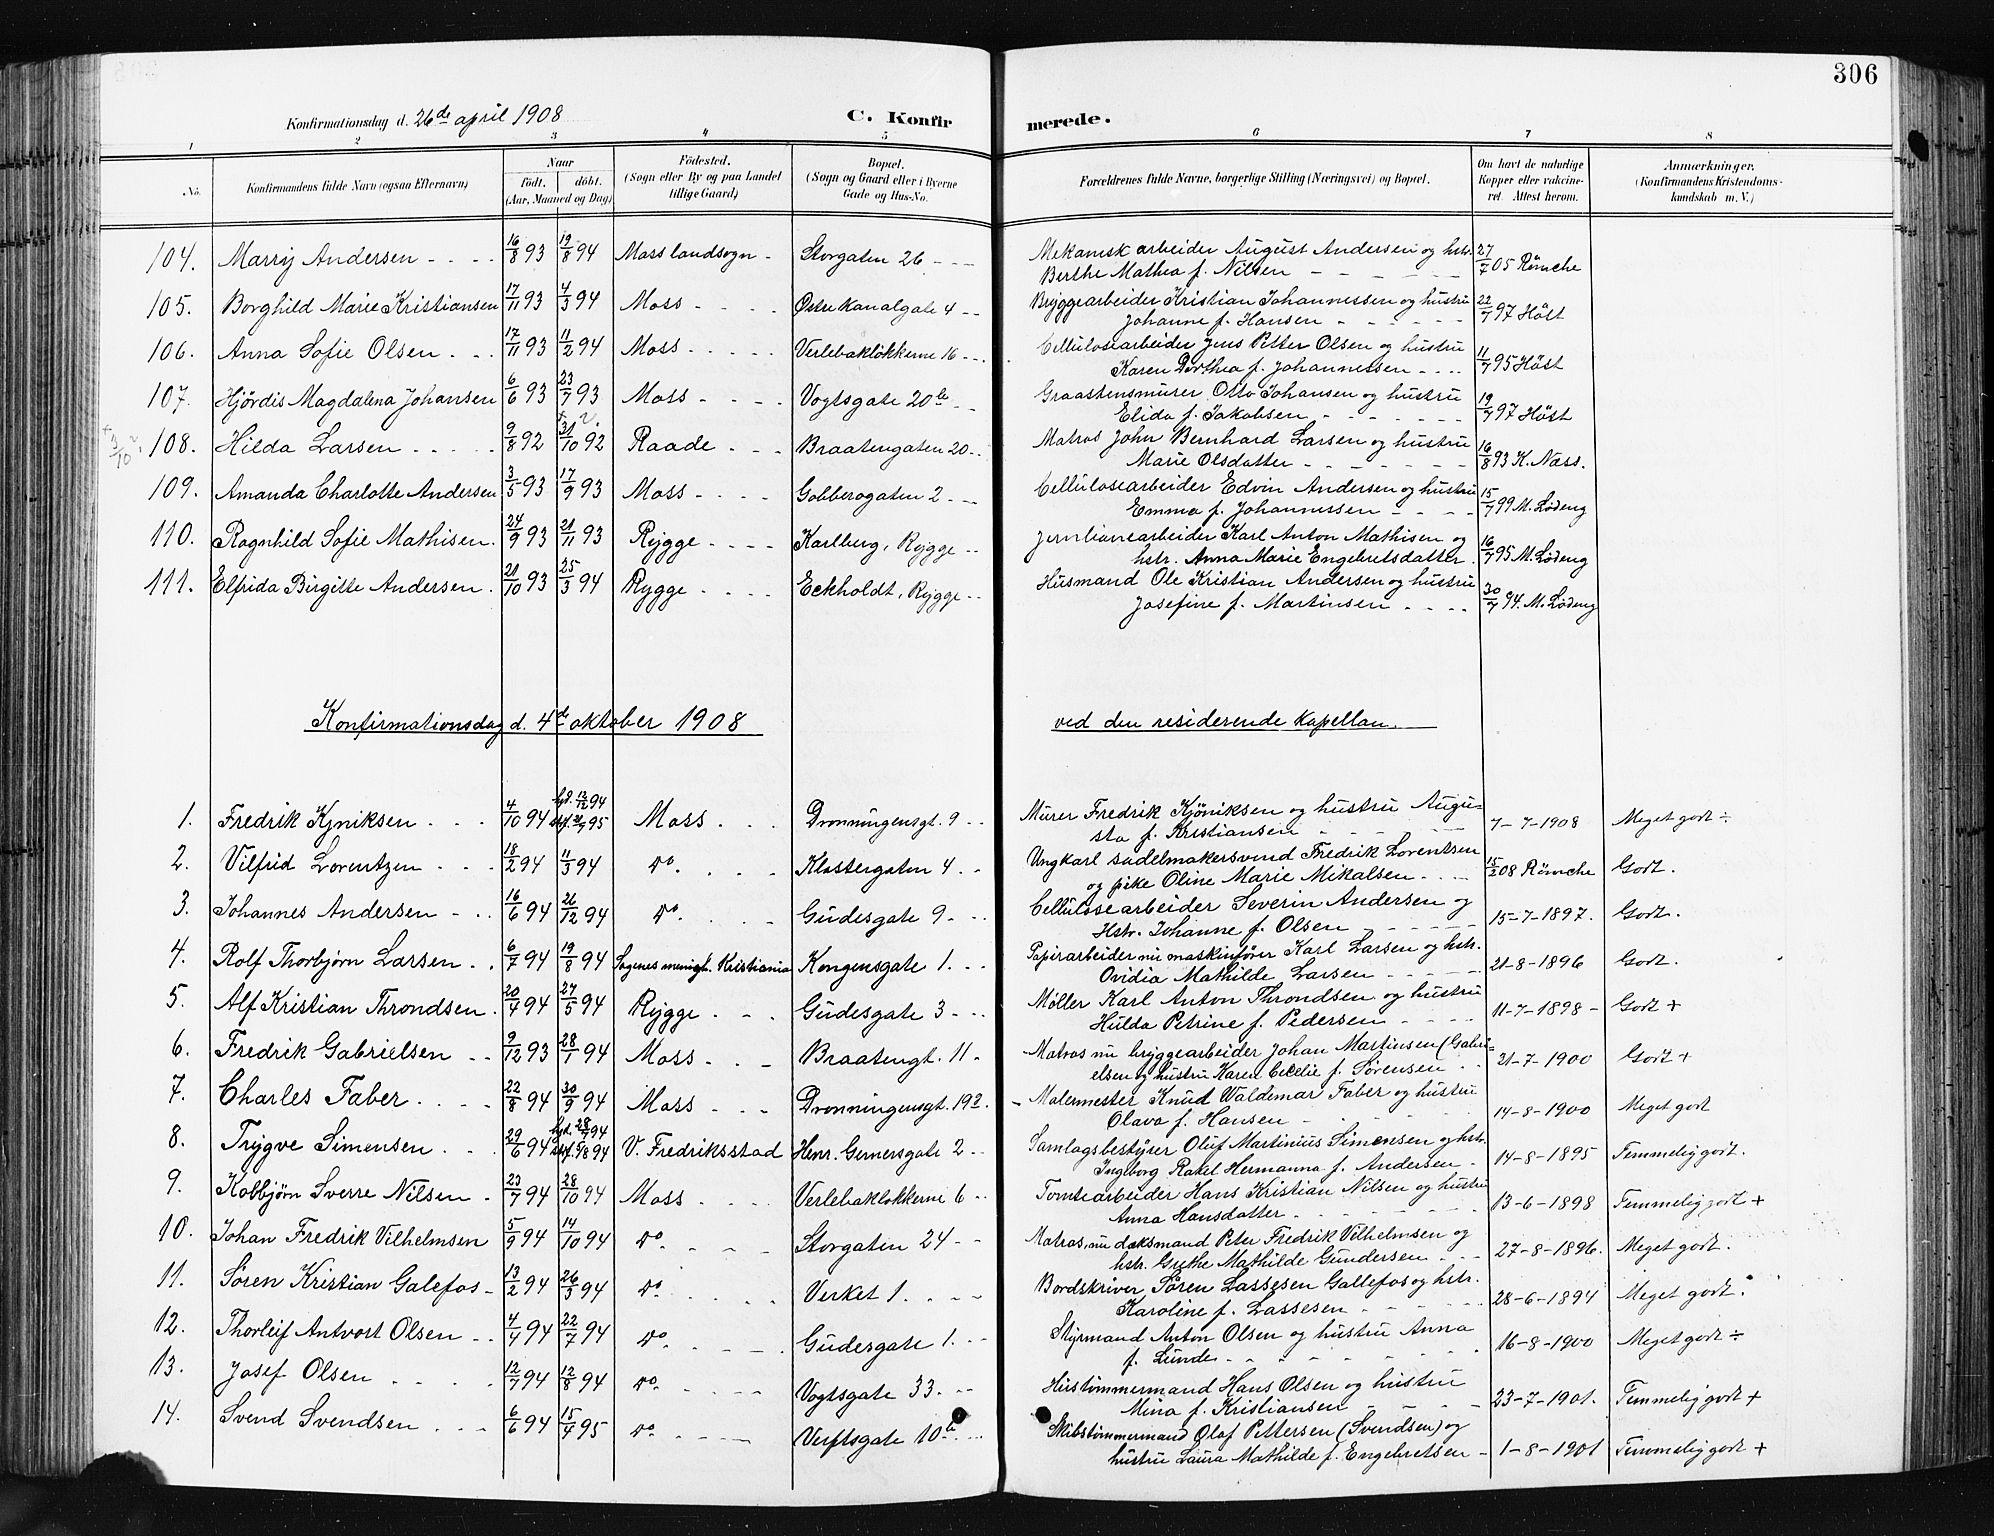 306
Konfirmationsdag d. 26de april 1908 C. Konfirmerede.
1 2 3 4 5 6 7 8
No. Konfirmandens fulde Navn (ogsaa Efternavn) Naar født. døbt. (Aar, Maaned og Dag) Fødested. (Sogn eller By og paa Landet tillige Gaard) Bopæl. (Sogn og Gaard eller i Byerne Gade og Hus-No. Forældrenes fulde Navne, borgerlige Stilling (Næringsvei) og Bopæl. Om havt de naturlige Kopper eller vakcineret. Attest herom. Anmærkninger. (Konfirmandens Kristendomskundskab m. V.)
104. Marry Andersen 16/8 93 19/8 94 Moss landsogn Storgaten 26 Mekanisk arbeider August Andersen og hstr. 27/7 05 Rømche
Berthe Mathea f. Nilsen
105. Borghild Marie Kristiansen 17/11 93 4/3 94 Moss Østre Kanalgate 4 Bryggearbeider Kristian Johannessen og hustru 22/7 97 Høst
Johanne f. Hansen
106. Anna Sofie Olsen 17/11 93 11/2 94 Moss Verlebakløkkerne 16 Cellulosearbeider Jens Petter Olsen og hustru 11/7 95 Høst
Karen Dorthea f. Johannessen
107. Hjördis Magdalena Johansen 6/6 93 23/7 93 Moss Vogtsgate 20b Graastensmurer Otto Johansen og hustru 19/7 97 Høst
Elida f. Jakobsen
108. Hilda Larsen 9/8 92 31/10 92 Raade Braatengaten 20 Matros John Bernhard Larsen og hustru 16/8 93 K. Næss.
Marie Olsdatter
109. Amanda Charlotte Andersen 3/5 93 17/9 93 Moss Gobberogaten 2 Cellulosearbeider Edvin Andersen og hustru 15/7 99 M. Lødeng
Emma f. Johannessen
110. Ragnhild Sofie Mathisen 24/9 93 21/11 93 Rygge Karlberg, Rygge Jernbanearbeider Karl Anton Mathisen og 16/7 95 M. Lødeng
hstr. Anna Marie Engebretsdatter
111. Elfrida Birgitte Andersen 21/10 93 25/3 94 Rygge Eckholdt, Rygge Husmand Ole Kristian Andersen og hustru 30/7 94. M. Lødeng
Josefine f. Martinsen
Konfirmationsdag d. 4de oktober 1908 ved den residerende kapellan.
1. Fredrik Kjniksen 4/10 94 Moss Dronningensgt. 9 Murer Fredrik Kjöniksen og hustru Augu- 7-7-1908 Meget godt ÷
sta f. Kristiansen
2. Vilfrid Lorentzen 18/2 94 11/3 94 Do Klostergaten 4 Ungkarl sadelmakersvend Fredrik Lorentsen 15/2 08 Rømche Godt.
og pike Oline Marie Mikalsen
3. Johannes Andersen 16/6 94 26/12 94 Do. Gudesgate 9 Cellulosearbeider Severin Andersen og 15-7-1897. Godt.
Hstr. Johanne f. Olsen
4. Rolf Thorbjørn Larsen 6/7 94 19/8 94 Sagenes menigh. Kristiania Kongensgate 1. Papirarbeider nu maskinfører Karl Larsen og hstr. 21-8-1896 Godt.
Ovidia Mathilde Larsen
5. Alf Kristian Throndsen 20/4 94 27/5 94 Rygge Gudesgate 3 Møller Karl Anton Throndsen og hustru 11-7-1898 Godt +
Hulda Petrine f. Pedersen
6. Fredrik Gabrielsen 9/12 93 28/1 94 Moss Braatengt. 11 Matros nu bryggearbeider Johan Martinsen (Gabri- 21-7-1900 Godt +
elsen og hustru Karen Cecelie f. Sørensen
7. Charles Faber 22/8 94 30/9 94 Moss Dronningensgt. 19 Malermester Knud Waldemar Faber og hustru 14-8-1900 Meget godt
Olava f. Hansen
8. Trygve Simensen 29/6 94 V. Fredriksstad Henr. Gernersgate 2 Samlagsbestyrer Oluf Martinius Simensen og hstr. 14-8-1895 Temmelig godt.
Ingeborg Rakel Hermanna f. Andersen
9. Kolbjørn Sverre Nilsen 23/7 94 28/10 94 Moss Verlebakløkkerne 6 Tomtearbeider Hans Kristian Nilsen og hustru 13-6-1898 Temmelig godt +
Anna Hansdatter
10. Johan Fredrik Vilhelmsen 5/9 94 14/10 94 Do. Storgaten 24 Matros, nu dæksmand Peter Fredrik Vilhelmsen og 27-8-1896. Meget godt.
hstr. Grethe Mathilde Gundersen
11. Søren Kristian Galefos 13/2 94 26/3 94 Do. Verket 1. Bordskriver Søren Lassesen Gallefos og hstr. 28-6-1894 Meget godt.
Karoline f. Lassesen
12. Thorleif Antvort Olsen 4/4 94 22/7 94 Do. Gudesgate 1. Styrmand Anton Olsen og hustru Anna 16-8-1900 Meget godt ÷
f. Lunde
13. Josef Olsen 12/7 94 12/8 94 Do. Vogtsgate 33. Hustømmermand Hans Olsen og hustru 23-7-1901. Temmelig godt +
Mina f. Kristiansen
14. Svend Svendsen 6/6 94 15/4 95 Do. Verftsgate 10b Skibstømmermand Olaf Pettersen (Svendsen) og 1-8-1901 Temmelig godt +
hustru Laura Mathilde f. Engebretsen